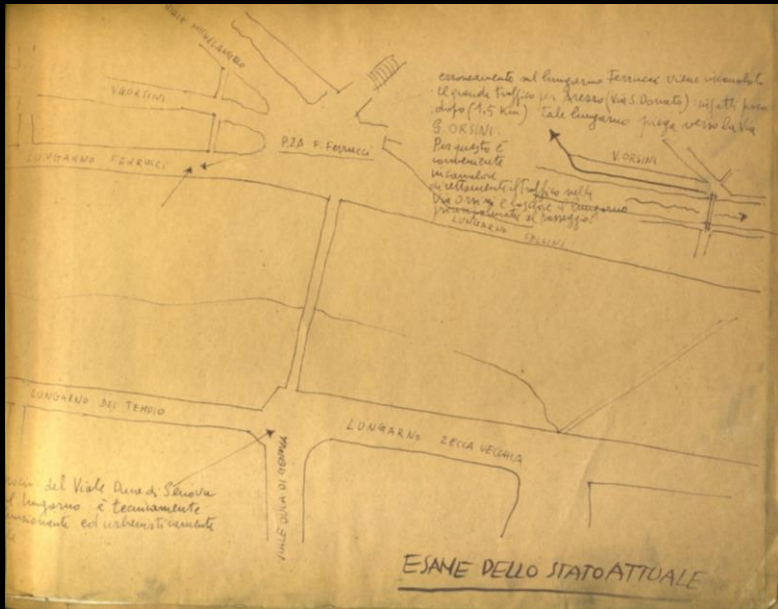 VIALE MICHELANGELO
V. ORSINI
LUNGARNO FERRUCCI
P.ZA F. Ferrucci
erroneamente sul lungarno Ferrucci viene incanalato
il grande traffico per Arezzo (Via S. Donato): infatti poco
dopo (1,5 Km) tale lungarno piega verso la Via
G. ORSINI.
Per questo è
conveniente
incanalare
direttamente il traffico nella
Via Orsini e lasciare il lungarno
al passeggio
V. ORSINI
LUNGARNO CELLINI
LUNGARNO DEL TEMPIO
LUNGARNO ZECCA VECCHIA
VIALE DUCA DI GENOVA
del Viale Duca di Genova
lungarno è tecnicamente
ed urbanisticamente
ESAME DELLO STATO ATTUALE